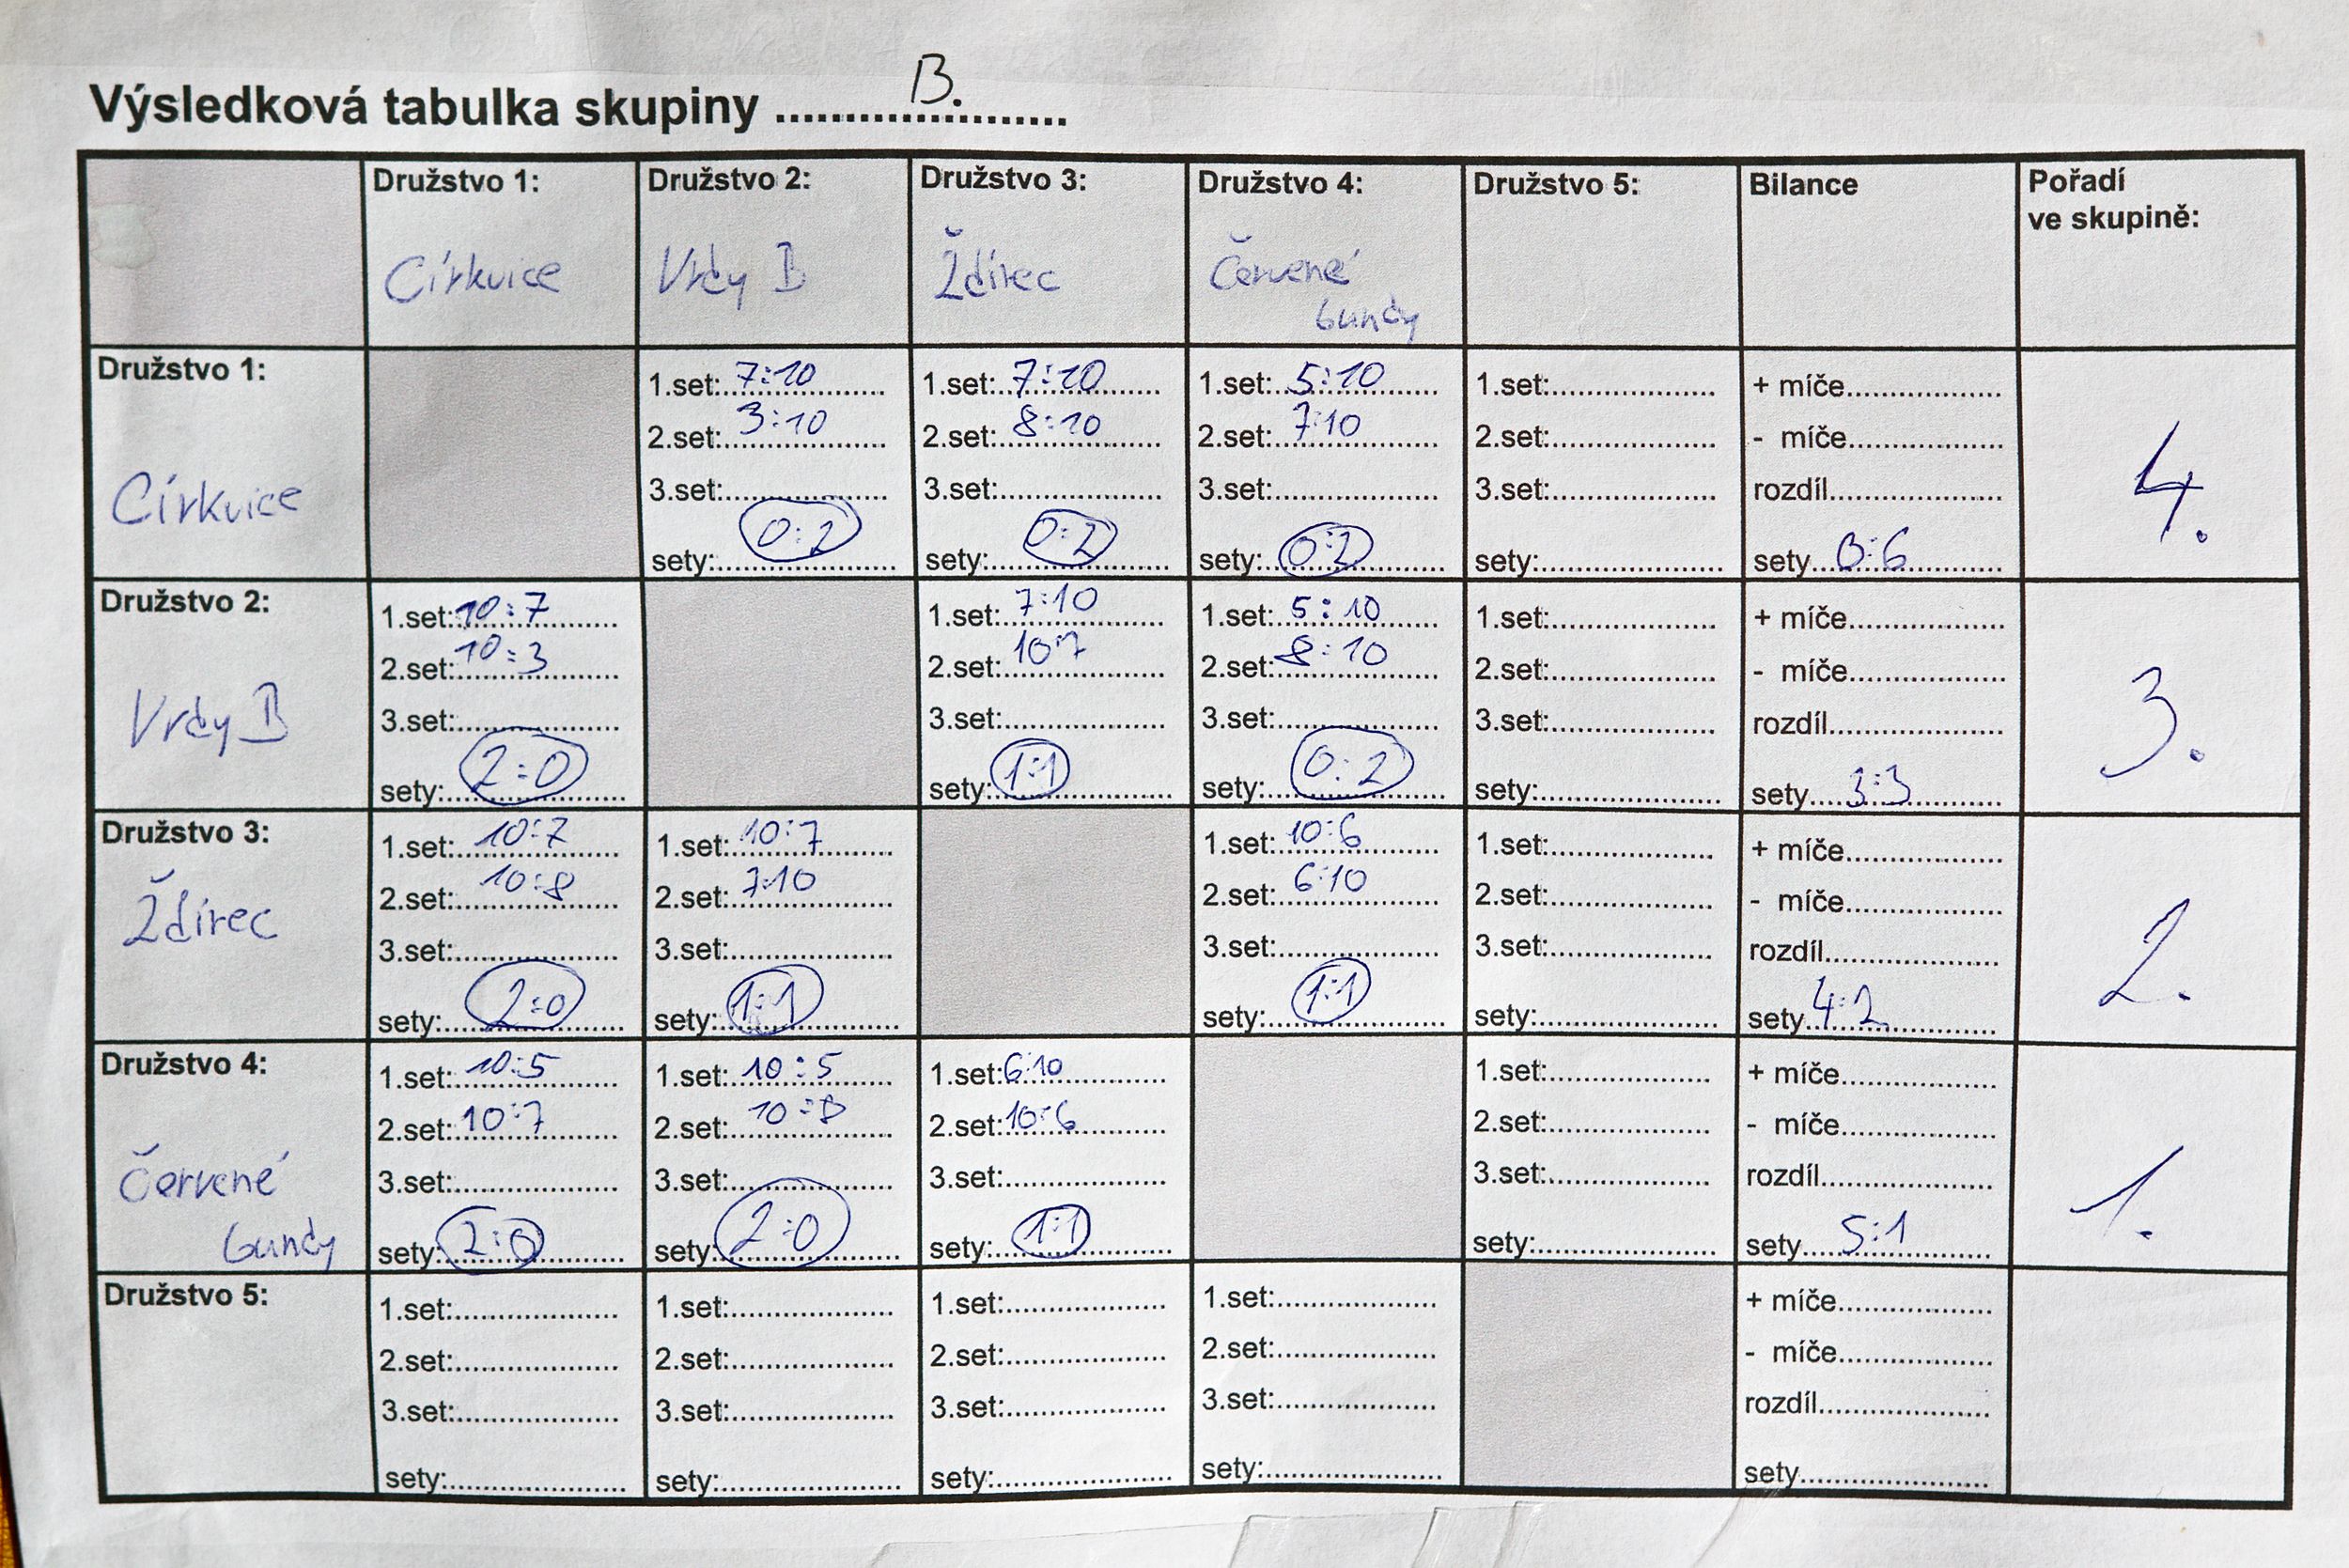 Výsledková tabulka skupiny ..........B...........
Družstvo 1: Družstvo 2: Družstvo 3: Družstvo 4: Družstvo 5: Bilance Pořadí
ve skupině:
Církvice Vrdy B Ždírec Červené
gundy
Družstvo 1:
Církvice
1.set: 7:10
2.set: 3:10
3.set:
sety: 0:2
1.set: 7:10
2.set: 8:10
3.set:
sety: 0:2
1.set: 5:10
2.set: 7:10
3.set:
sety: 0:2
1.set:
2.set:
3.set:
sety:
+ míče
- míče
rozdíl
sety 0:6
4.
Družstvo 2:
Vrdy B
1.set: 10:7
2.set: 10:3
3.set:
sety: 2:0
1.set: 7:10
2.set: 10:7
3.set:
sety: 1:1
1.set: 5:10
2.set: 8:10
3.set:
sety: 0:2
1.set:
2.set:
3.set:
sety:
+ míče
- míče
rozdíl
sety 3:3
3.
Družstvo 3:
Ždírec
1.set: 10:7
2.set: 10:8
3.set:
sety: 2:0
1.set: 10:7
2.set: 7:10
3.set:
sety: 1:1
1.set: 10:6
2.set: 6:10
3.set:
sety: 1:1
1.set:
2.set:
3.set:
sety:
+ míče
- míče
rozdíl
sety 4:2
2.
Družstvo 4:
Červené
gundy
1.set: 10:5
2.set: 10:7
3.set:
sety: 2:0
1.set: 10:5
2.set: 10:8
3.set:
sety: 2:0
1.set: 6:10
2.set: 10:6
3.set:
sety: 1:1
1.set:
2.set:
3.set:
sety:
+ míče
- míče
rozdíl
sety 5:1
1.
Družstvo 5:
1.set:
2.set:
3.set:
sety:
1.set:
2.set:
3.set:
sety:
1.set:
2.set:
3.set:
sety:
1.set:
2.set:
3.set:
sety:
+ míče
- míče
rozdíl
sety